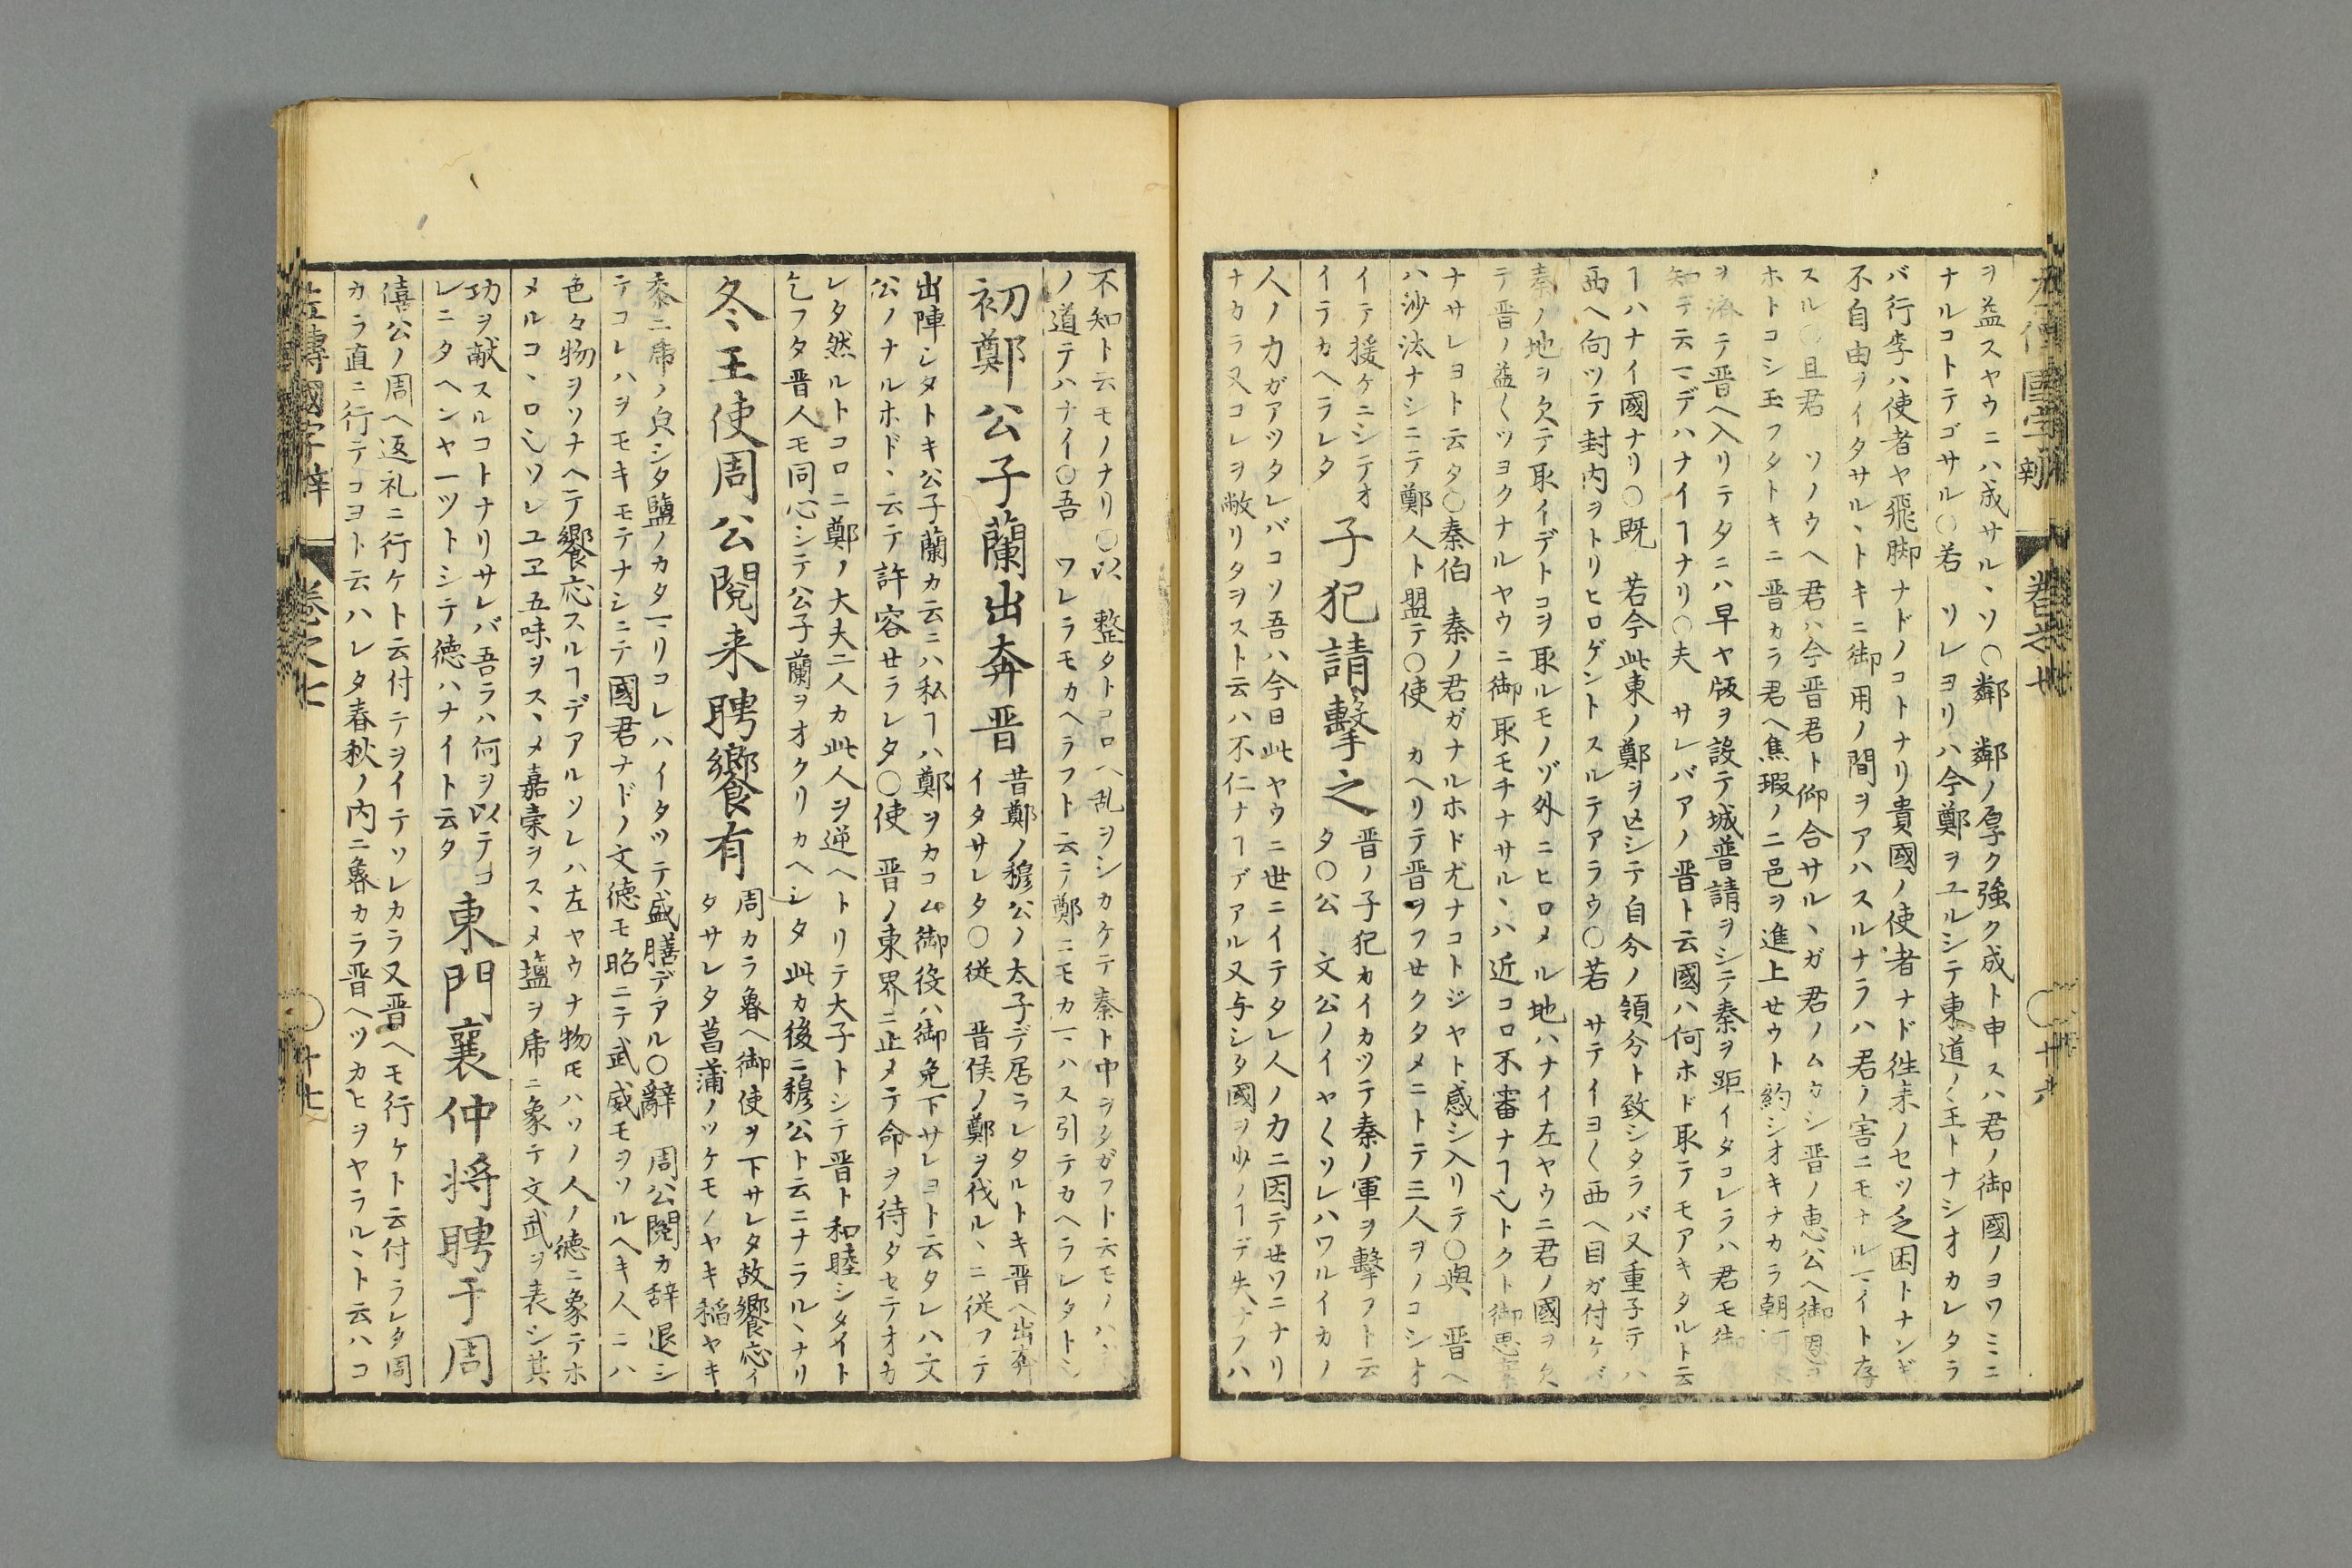 左傳國字辯
卷之七
〇
十六
ヲ益スヤウニハ成サルヽソ〇鄰 鄰ノ厚ク強ク成ト申スハ君ノ御國ノヨワミニ
ナルコトテゴサル〇若 ソレヨリハ今鄭ヲユルシテ東道ノ主トナシオカレタラ
バ行李ハ使者ヤ飛脚ナドノコトナリ貴國ノ使者ナド徃来ノセツ乏困トナンギ
不自由ヲイタサルヽトキニ御用ノ間ヲアハスルナラハ君ノ害ニモナルヿイト存
スル〇且君 ソノウヘ君ハ今晋君ト仰合サルヽガ君ノムカシ晋ノ恵公ヘ御恩ヲ
ホトコシ玉フタトキニ晋カラ君ヘ焦瑕ノ二邑ヲ進上セウト約シオキナカラ朝河
ヲ済テ晋ヘ入リテタニハ早ヤ版ヲ設テ城普請ヲシテ秦ヲ距イタコレラハ君モ御
知テ云マデハナイヿナリ〇夫 サレバアノ晋ト云國ハ何ホド取テモアキタルト云
ヿハナイ國ナリ〇既 若今此東ノ鄭ヲ亡シテ自分ノ領分ト致シタラバ又重子テハ
西ヘ向ツテ封内ヲトリヒロゲントスルテアラウ〇若 サテイヨ〱西ヘ目ガ付ケバ
秦ノ地ヲ欠テ取イデトコヲ取ルモノゾ外ニヒロメル地ハナイ左ヤウニ君ノ國ヲ欠
テ晋ノ益〱ツヨクナルヤウニ御取モチナサルヽハ近コロ不審ナヿ乄トクト御思案
ナサレヨト云タ〇秦伯 秦ノ君ガナルホド尤ナコトジヤト感シ入リテ〇與 晋ヘ
ハ沙汰ナシニテ鄭人ト盟テ〇使 カヘリテ晋ヲフセクタメニトテ三人ヲノコシオ
イテ援ケニシテオ
イテカヘラレタ
子犯請擊之
晋ノ子犯カイカツテ秦ノ軍ヲ擊フト云
タ〇公 文公ノイヤ〱ソレハワルイカノ
人ノ力ガアツタレバコソ吾ハ今日此ヤウニ世ニイテタレ人ノ力ニ因テセワニナリ
ナカラ又コレヲ敝リタヲスト云ハ不仁ナヿデアル又与シタ國ヲ少ノヿデ失ナフハ
不知ト云モノナリ〇以 整タトコロヘ乱ヲシカケテ秦ト中ヲタガフト云モノハ
ノ道テハナイ〇吾 ワレラモカヘラフト云テ鄭ニモカマハス引テカヘラレタトシ
初鄭公子蘭出奔晋
昔鄭ノ穆公ノ太子デ居ラレタルトキ晋ヘ出奔
イタサレタ〇従 晋侯ノ鄭ヲ伐ルヽニ従フテ
出陣シタトキ公子蘭カ云ニハ私ヿハ鄭ヲカコム御役ハ御免下サレヨト云タレハ文
公ノナルホドヽ云テ許容セラレタ〇使 晋ノ東界ニ止メテ命ヲ待タセテオカ
レタ然ルトコロニ鄭ノ大夫二人カ此人ヲ逆ヘトリテ大子トシテ晋ト和睦シタイト
乞フタ晋人モ同心シテ公子蘭ヲオクリカヘシタ此カ後ニ穆公ト云ニナラルヽナリ
冬王使周公閲来聘饗有
周カラ魯ヘ御使ヲ下サレタ故饗応イ
タサレタ菖蒲ノツケモノヤキ稲ヤキ
黍ニ席ノ貞シタ鹽ノカタマリコレハイタツテ盛膳デアル〇辭 周公閲カ辞退シ
テコレハヲモキモテナシニテ國君ナドノ文徳モ昭ニテ武威モヲソルヘキ人ニハ
色々物ヲソナヘテ饗応スルヿデアルソレハ左ヤウナ物モハソノ人ノ徳ニ象テホ
メルコヽロ乄ソレユヱ五味ヲスヽメ嘉栗ヲスヽメ塩ヲ席ニ象テ文武ヲ表シ其
功ヲ献スルコトナリサレバ吾ラハ何ヲ以テコ
レニタヘンヤ一ツトシテ徳ハナイト云タ
東門襄仲将聘于周
僖公ノ周ヘ返礼ニ行ケト云付テヲイテソレカラ又晋ヘモ行ケト云付ラレタ周
カラ直ニ行テコヨト云ハレタ春秋ノ内ニ魯カラ晋ヘツカヒヲヤラルヽト云ハコ
左傳國字辯
卷之七
〇
十七